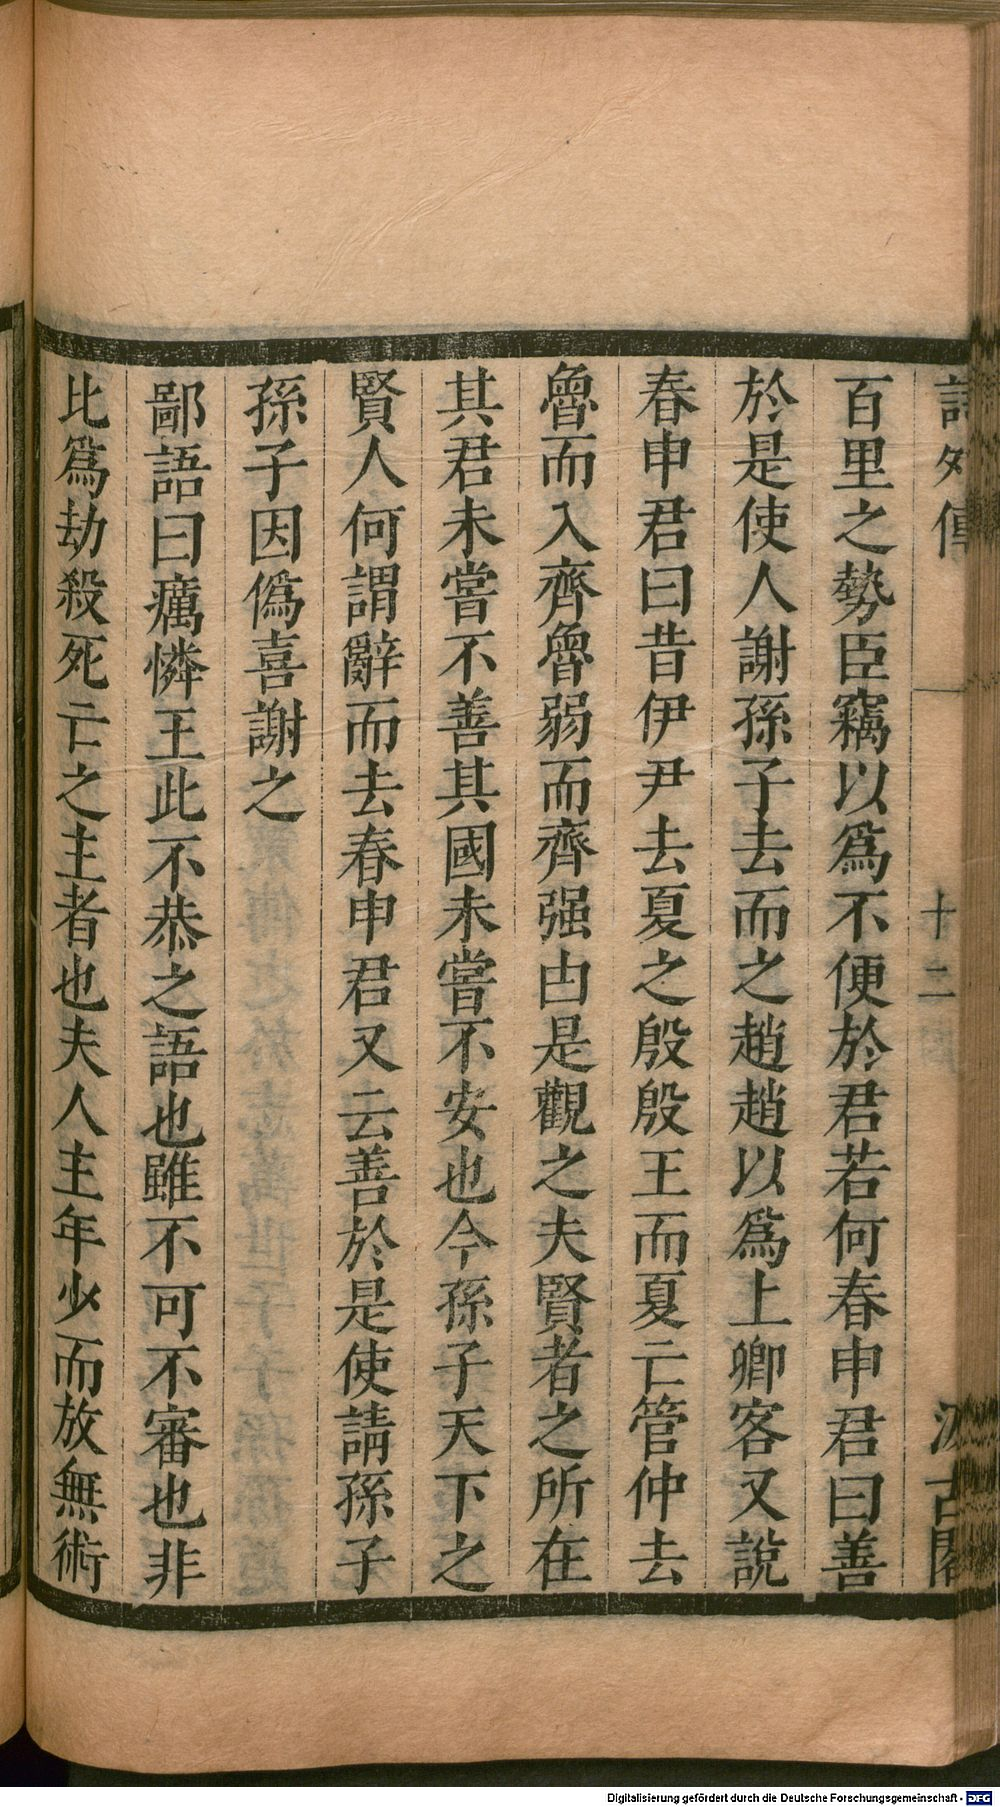 詩外傳 十二 汲古閣
百里之勢臣竊以爲不便於君若何春申君曰善
於是使人謝孫子去而之趙趙以爲上卿客又說
春申君曰昔伊尹去夏之殷殷王而夏亡管仲去
魯而入齊魯弱而齊强由是觀之夫賢者之所在
其君未嘗不善其國未嘗不安也今孫子天下之
賢人何謂辭而去春申君又云善於是使請孫子
孫子因僞喜謝之
鄙語曰癘憐王此不恭之語也雖不可不審也非
比爲劫殺死亡之主者也夫人主年少而放無術
Digitalisierung gefördert durch die Deutsche Forschungsgemeinschaft - DFG